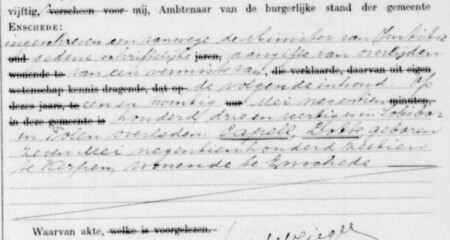 vijftig, verscheen voor mij, Ambtenaar van de burgerlijke stand der gemeente
ENSCHEDE:
ingeschreven een vanwege de Minister van Justitie
oud gedane schriftelijke jaren, aangifte van overlijden
wonende te van een vermiste van, die verklaarde, daarvan uit eigen
wetenschap kennis dragende, dat op de volgende inhoud: Op
dezes jaars, te een en twintig uur Mei negentien minuten,
in deze gemeente is honderd drie en veertig is in Sobibor
in Polen overleden: geboren
zeven Mei negentienhonderd zestien
te Kerpen, wonende te Enschede
Waarvan akte, welke is voorgelezen.